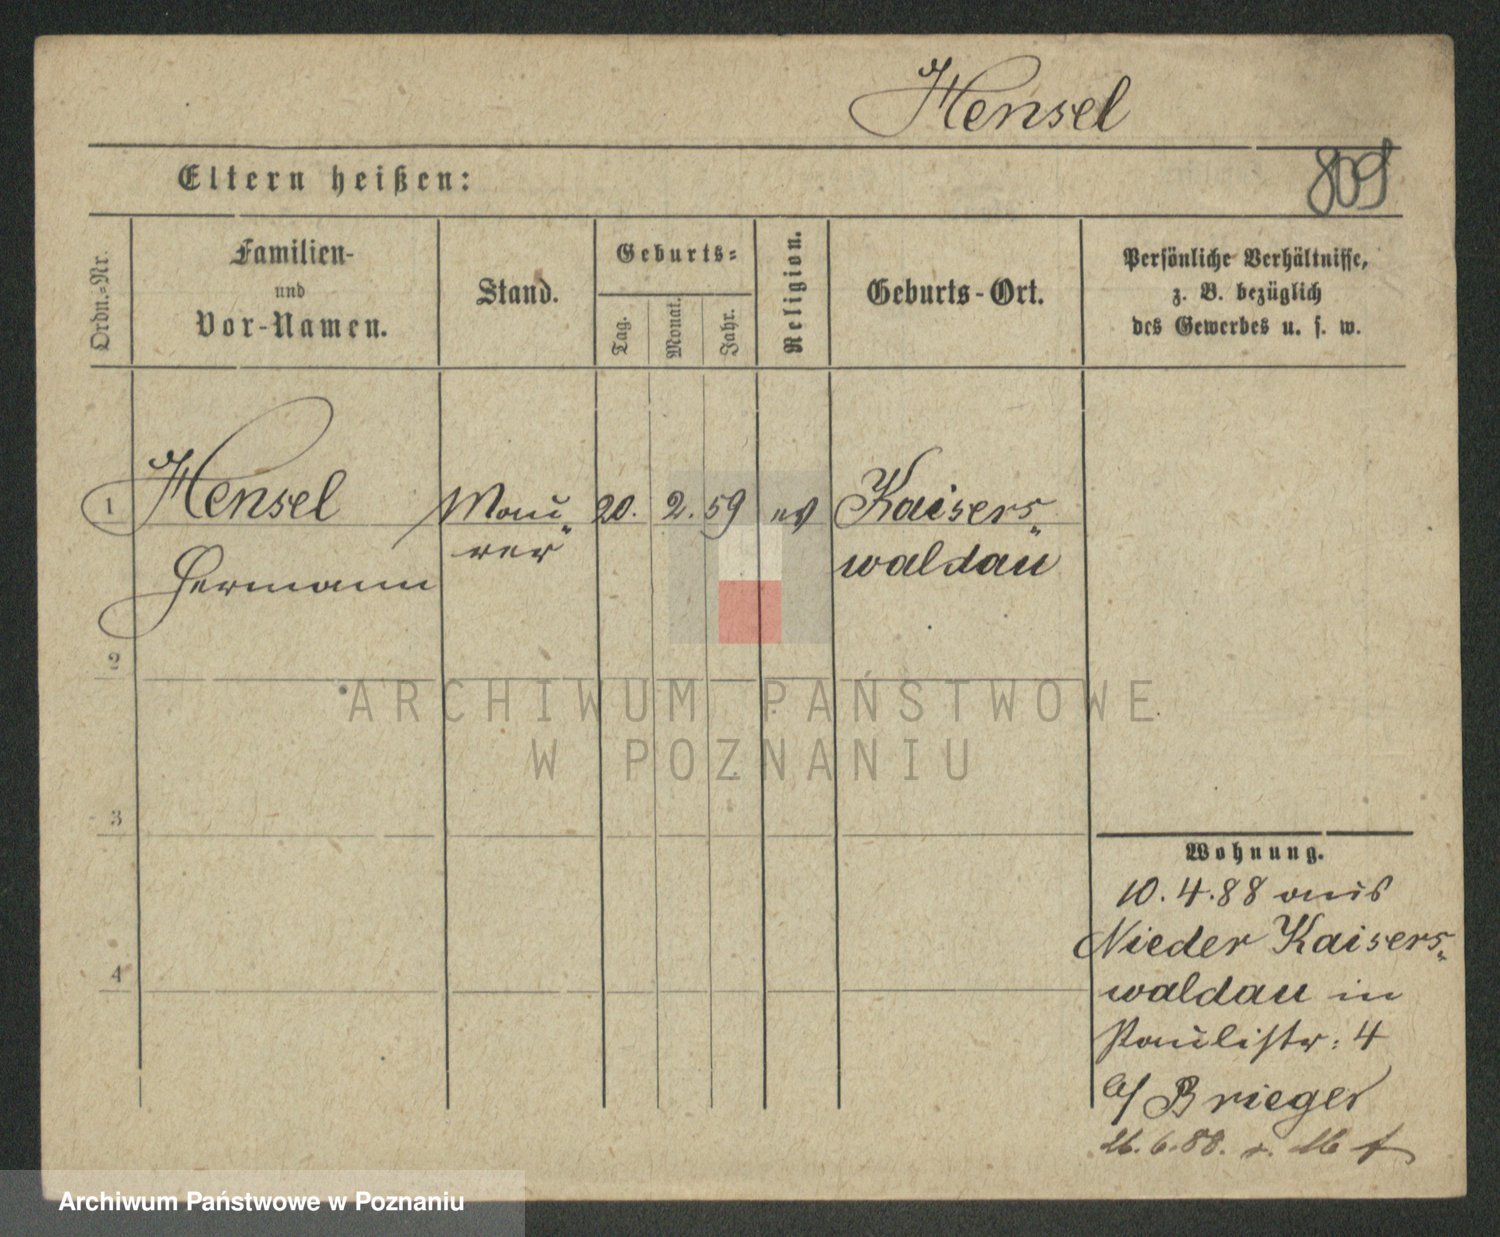 Hensel
809
Eltern heißen:
Ordn.=Nr.
Familien-
und
Vor-Namen.
Stand.
Geburts=
Tag.
Monat.
Jahr.
Religion.
Geburts-Ort.
Persönliche Verhältnisse,
z. B. bezüglich
des Gewerbes u. s. w.
1 Hensel Mau= 20. 2. 59 ev Kaisers=
rer waldau
Hermann
2
3
4
ARCHIWUM PAŃSTWOWE
W POZNANIU
Wohnung.
10. 4. 88 aus
Nieder Kaisers=
waldau in
Paulistr: 4
b/ Brieger
26. 6. 88.
Archiwum Państwowe w Poznaniu